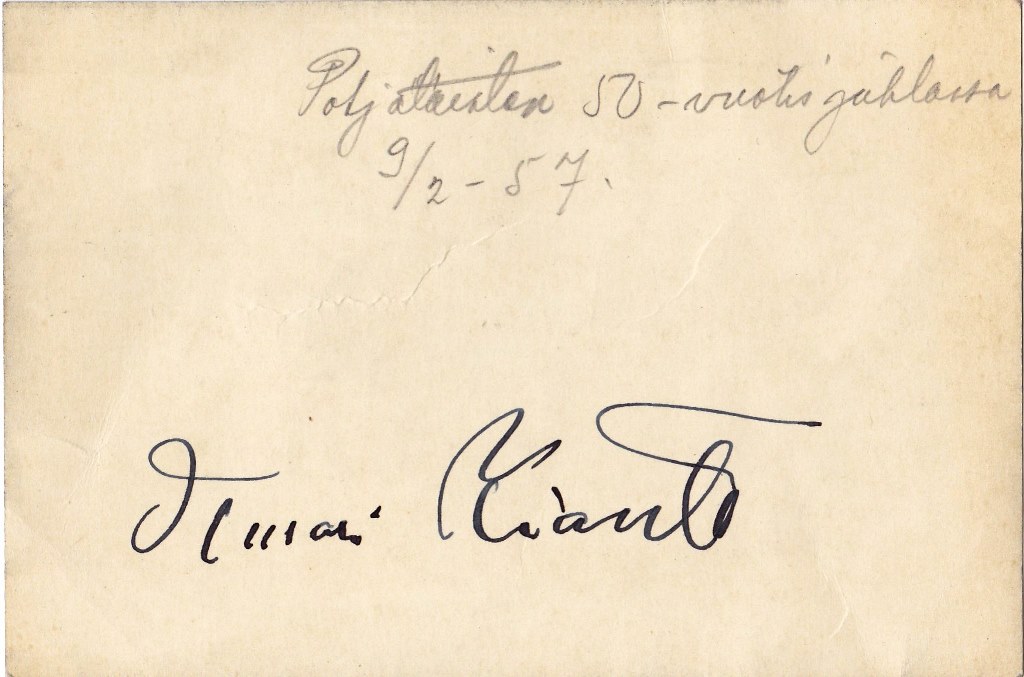 Pohjalaisten 50-vuotisjuhlassa
9/2-57.
Ilmari Kianto